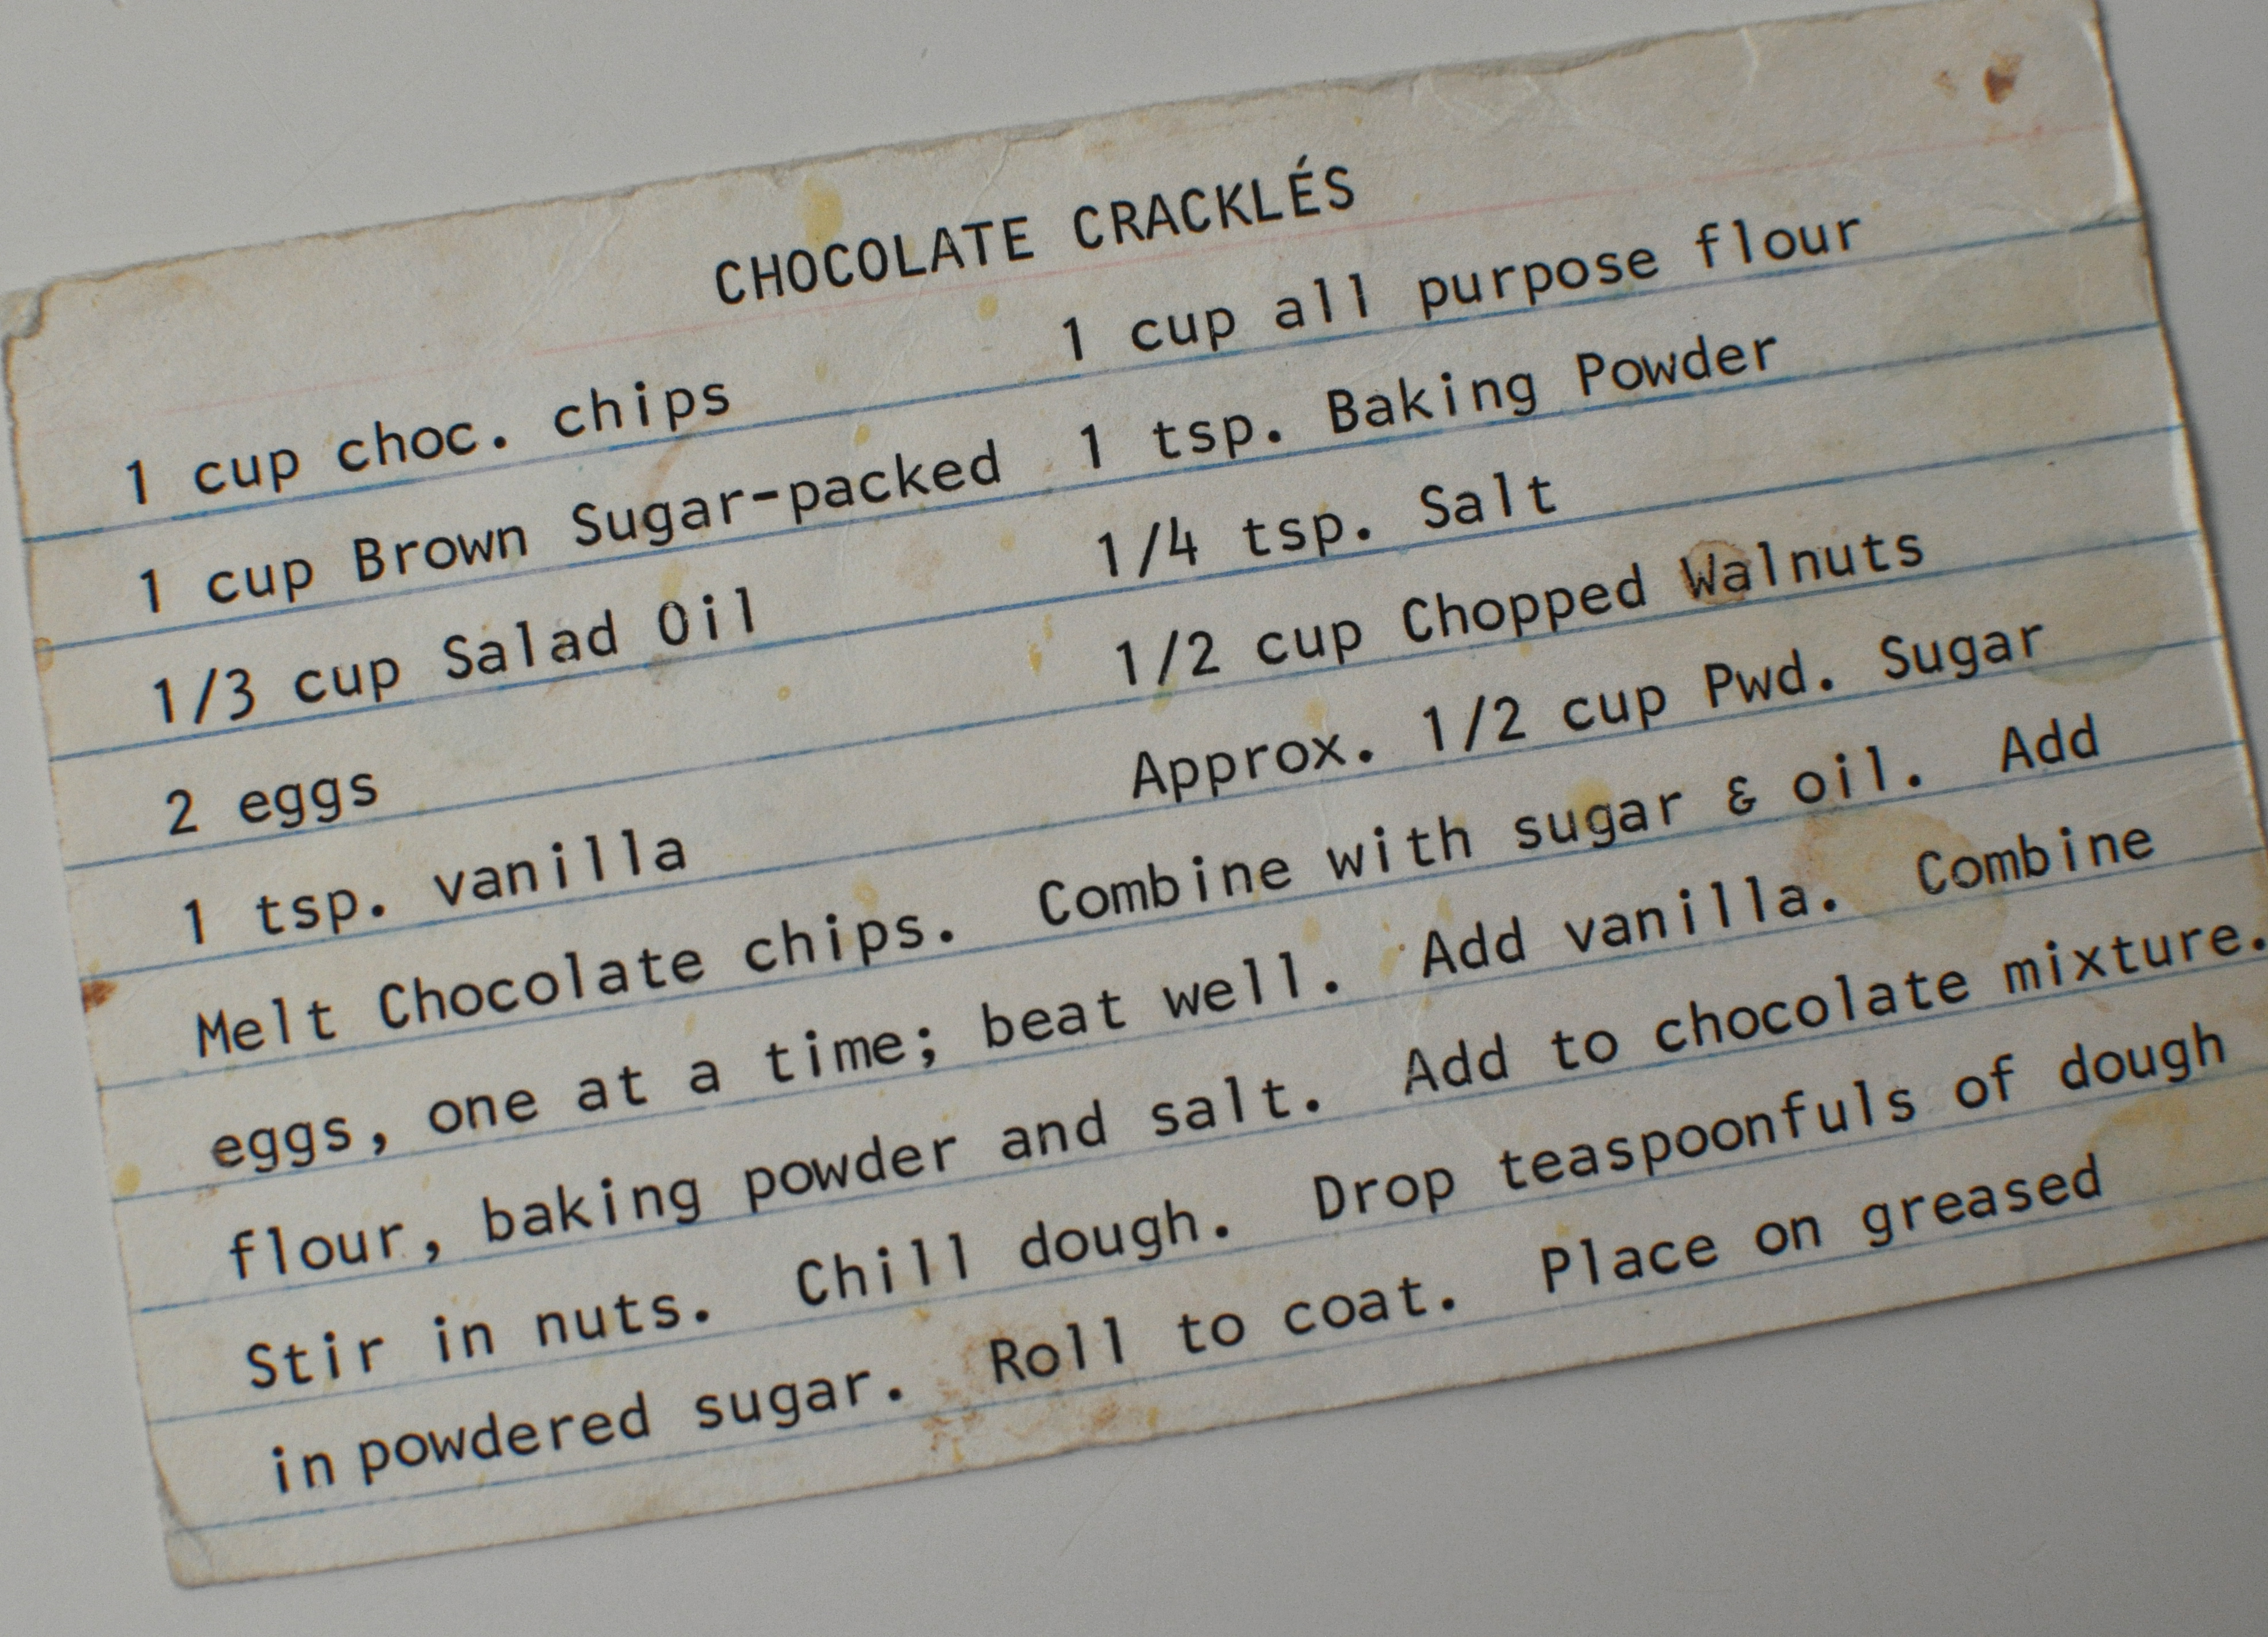 CHOCOLATE CRACKLÉS
1 cup choc. chips 1 cup all purpose flour
1 cup Brown Sugar-packed 1 tsp. Baking Powder
1/3 cup Salad Oil 1/4 tsp. Salt
2 eggs 1/2 cup Chopped Walnuts
1 tsp. vanilla Approx. 1/2 cup Pwd. Sugar
Melt Chocolate chips. Combine with sugar & oil. Add
eggs, one at a time; beat well. Add vanilla. Combine
flour, baking powder and salt. Add to chocolate mixture.
Stir in nuts. Chill dough. Drop teaspoonfuls of dough
in powdered sugar. Roll to coat. Place on greased